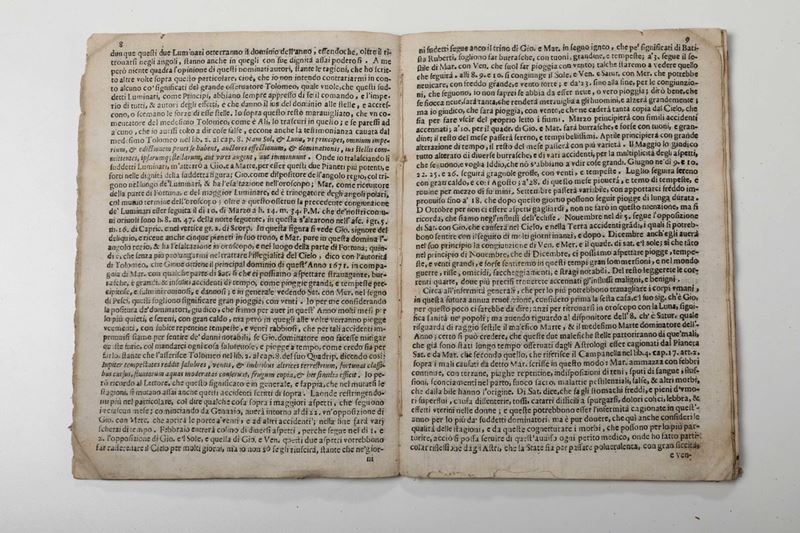 8
dunque questi due Luminari otterranno il dominio dell'anno, essendoche, oltre il ri-
trouarsi negl'angoli, stanno anche in quegli con sue dignità assai poderosi. A me
però niente quadra l'opinione di questi nominati autori, stante le ragioni, che hò scrit-
to altre volte sopra questo particolare, cioè, che io non intendo contrariarmi in con-
to alcuno co' significati del grande osseruatore Tolomeo, quale vuole, che questi sud-
detti Luminari, come Principi, abbiano sempre appresso di se il comando, e l'impe-
rio di tutti, & autori degl'effetti, e che danno il ius del dominio alle stelle, e accres-
cono, o scemano le forze di esse stelle. Io sopra questo resto
mentatore del medesimo Tolomeo, come è Ali, lo trascuri in questo; e se paressi ad
alcuno, che io auessi tolto a dir cose false, eccone anche la testimonianza cauata dal
medesimo Tolomeo nel lib. 2. al cap. 8. Nam Sol, & Luna, vt principes, omnium impe-
rium, &
mittentes, ipsarumque stellarum, aut vires augent, aut imminuunt. Onde io tralasciando li
suddetti Luminari, m'atterrò a Gio. e Marte, per esser questi due Pianeti più potenti, e
ben nelle dignità della suddetta figura; Gio. come dispositore dell'angolo regio, col tri-
gono nel luogo de' Luminari, & ha esaltatione nell'oroscopo; Mar. come ricettore
della parte di Fortuna, e del maggior Luminare, ed è trinogatore degl'angoli polari,
col mutuo termine dell'oroscopo; oltre a questo osseruo la precedente congiunzione
de' Luminari esser seguita il dì 10. di Marzo a h. 14. m. 34. P.M. che de' nostri comu-
ni oriuoli sono h. 8. m. 47. della notte seguente, in questa s'alzarono nell'asc. i gr. 5.
m. 16. di Capric. e nel vertice gr. 2. di Scorp. In questa figura si vede Gio. signore del
deliquio, e riceue anche cinque pianeti in suo trono, e Mar. pure in questa domina l'an-
golo regio, & ha l'esaltatione nell'oroscopo, e nel luogo della parte di Fortuna; quin-
di è, che senza più prolungarmi nel trattare l'essegialità del Cielo, dico con l'autorità
di Tolomeo, che Gioue ottiene il principal dominio di quest'Anno 1671. in compa-
gnia di Mar. con qualche parte di Sat. si che ci possiamo aspettare strauaganze, bur-
rasche, e grandi, & insoliti accidenti di tempo, come pioggie grandi, e tempeste pre-
cipitose, e fulmini
di Pesci, questi sogliono significare gran pioggie, con venti. Io per me considerando
la positura de' dominatori, giudico, che siamo per auer in quest' Anno molti mesi per
lo più quieti, e sereni, con gran caldo, ma però in quegli alle volte verranno pioggie
veementi, con subite repentine tempeste, e venti rabbiosi, che per tali accidenti im-
prouisi siamo per sentire de' danni notabili, se Gio. dominatore non facesse mitigar
queste furie, col mandarci ogni cosa salutevole, e pioggie a tempo, come credo sia per
farlo, stante che l'asserisce Tolomeo nel lib. 2. al cap. 8. del suo Quadrip. dicendo così:
Iupiter tempestates reddit salubres, ventos, & imbribus alentes terrestrium, fortunat classi-
bus cursus, fluuiorum aquas moderatas conseruat, frugum copia, & his similia efficit. Io pe-
rò ricordo al Lettore, che questo significato è in generale, e sappia, che nel mutarsi le
stagioni, si mutano assai anche questi accidenti scritti di sopra. Laonde restringendo-
mi più nel particolare, col dire qualche cosa sopra i maggiori aspetti, che seguono
in ciascun mese; cominciando da Gennaio, auerà intorno al dì 22. vn'opposizione di
Gio. con Mer. che atterà le porte a' venti, e ad altri accidenti; nella fine sarà vary
scherzi di tempo. Febbraio entrerà colmo di diuersi aspetti, perche segue nel dì 1. e
2. l'opposizione di Gio. e 'l Sole, e quella di Gio. e Ven. questi due aspetti vorrebbono
far rasserenare il Cielo per molti giorni, ma io non sò se gli riuscirà, stante che ne' gior-
ni
9
ni sudetti segue anco il trino di Gio. e Mar. in segno igneo, che pe' significati di Bati-
sta Ruberti, sogliono far burrasche, con tuoni, grandine, e tempeste; a' 3. segue il se-
stile di Mar. con Ven. che suol far pioggia con vento; talche staremo a vedere quello
che seguirà. alli 8. 9. e 10. si congiunge il Sole, e Ven. e Satur. con Mer. che potrebbe
neuicare, con freddo grande, e vento forte; e da' 23. sino alla fine, per le congiunzio-
ni, che seguono, io non saprei se abbia da esser neue, o vero pioggia; dirò bene, che
se fiocca neue, sarà tanta, che renderà merauiglia agl'huomini, e alzerà grandemente;
ma io giudico, che sarà pioggia, con vento, e che ne caderà tanta copia dal Cielo, che
sia per fare vscir del proprio letto i fiumi. Marzo principierà con simili accidenti
accennati; a' 10. per il quadr. di Gio. e Mar. farà burrasche, e forse con tuoni, e gran-
dine; il resto del mese passerà sereno, e tempi bellissimi. Aprile principierà con grande
alterazione di tempo, il resto del mese passerà con più varietà. Il Maggio lo giudico
tutto alterato di diuerse burrasche, e di vari accidenti, per la multiplicità degli aspetti,
che seguono, e voglia Iddio, che nò s'abbino a vdir cose grandi. Giugno ne' dì 9. e 10.
22. 25. e 26. seguirà gragnuole grosse, con venti, e tempeste. Luglio seguirà sereno
con gran caldo, e così Agosto; a' 28. di questo mese piouerà, e temo di tempeste, e
rouine per mezzo di fumini, Settembre passerà variabile, con apportarci freddo im-
prouiso sino a' 18. che dopo questo giorno possono seguir pioggie di lunga durata.
D Ottobre per non ci essere aspetti gagliardi, non ne farò in questo menzione, ma si
ricorda, che siamo negl'influssi dell'ecclisse. Nouembre nel dì 5. segue l'opposizione
di Sat. con Gio. che causerà nel Cielo, e nella Terra accidenti grandi, i quali si potreb-
bono sentire con il seguito di molti giorni innanzi, e dopo. Dicembre anch'egli auerà
nel suo principio la congiunzione di Ven. e Mer. e il quadr. di Sat. e 'l sole; si che tāto
nel principio di Nouembre, che di Dicembre, ci possiamo aspettare pioggie, tempe-
ste, e venti grandi, e forse sentiremo in questi tempi gran sommersioni, e nel mondo
guerre, risse, omicidi, saccheggiamenti, e stragi notabili. Del resto leggerete le cor-
renti quarte, doue più precisi trouerete accennati gl'influssi maligni, e benigni.
Circa all'infermità generali, che per lo più potrebbono trauagliare i corpi vmani,
in questa futura annua reuoluzione, considero prima la sesta casa, e 'l suo sig. ch'è Gio,
per questo poco ci sarebbe da dire; anzi per ritrouarsi in oroscopo con la Luna, signi-
fica sanità ne' popoli; ma auendo riguardo al dispositore dell'8. ch'è Satur. quale
risguarda di raggio sestile il malefico Marte, & il medesimo Marte dominatore dell'-
Anno; certo si può credere, che queste due malefiche stelle partoriranno di que' mali,
che già sono stati lungo tempo osseruati dagli Astrologi esser cagionati dal Pianeta
Sat. e da Mar. che secondo quello, che riferisce il Campanella nel lib. 4. cap. 17. art. 2.
sopra i mali causati da detto Mar. scriue in questo modo: Mar. ammazza con febbri
continue, con terzane, piaghe repentine, indisposizioni di reni, sputi di sangue, flus-
sioni, sconciamenti nel parto, fuoco sacro, malattie pestilenziali, false, & altri morbi,
che dalla bile hanno l'origini. Di Sat. dice, che fa gli stomachi freddi, e pieni d'vmo-
ri superflui, causa dissenterie, tossi, catarri difficili a spurgarsi, dolori colici, lebbra, &
effetti vterini nelle donne; e queste potrebbono esser l'infermità cagionate in quest'-
anno per lo più da' suddetti dominatori; ma è pur douere, che qui anche consideri le
qualità delle stagioni, e da queste cognetturare i morbi, che possono per lo più par-
torire, acciò si possa seruire di quest'auuiso ogni perito medico, onde ho fatto parti-
colar riflessione dagli Astri, che la State sia per passare poluerulenta, con gran siccità,
e ven-